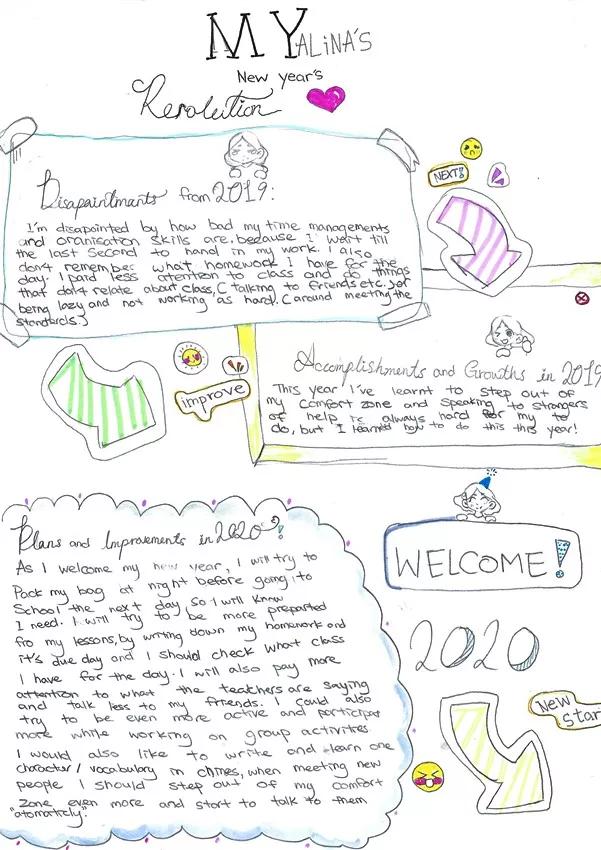 MY ALiNA'S
New year's
Resolution
Disapaintments from 2019:
NEXT!
I'm disapointed by how bad my time managements
and oranisation skills are, because I wait till
the last second to hand in my work. I also
don't remember what homework I have for the
day. I paid less attention to class and do things
that don't relate about class, ( talking to friends etc.) or
being lazy and not working as hard. ( around meeting the
standards.)
improve
Accomplishments and Growths in 2019
This year I've learnt to step out of
my comfort zone and speaking to strangers
of help is always hard for my to
do, but I learned how to do this this year!
Plans and Improvements in 2020!
As I welcome my new year, I will try to
Pack my bag at night before going to
School the next day so I will know
I need. I will try to be more preparted
fro my lessons, by writing down my homework and
it's due day and I should check what class
I have for the day. I will also pay more
attention to what the teachers are saying
and talk less to my friends. I could also
try to be even more active and participat
more while working on group activities
I would also like to write and learn one
character / vocabulary in chines, when meeting new
people I should step out of my comfort
zone even more and start to talk to them
"atomaticly."
WELCOME!
2020
New
Star